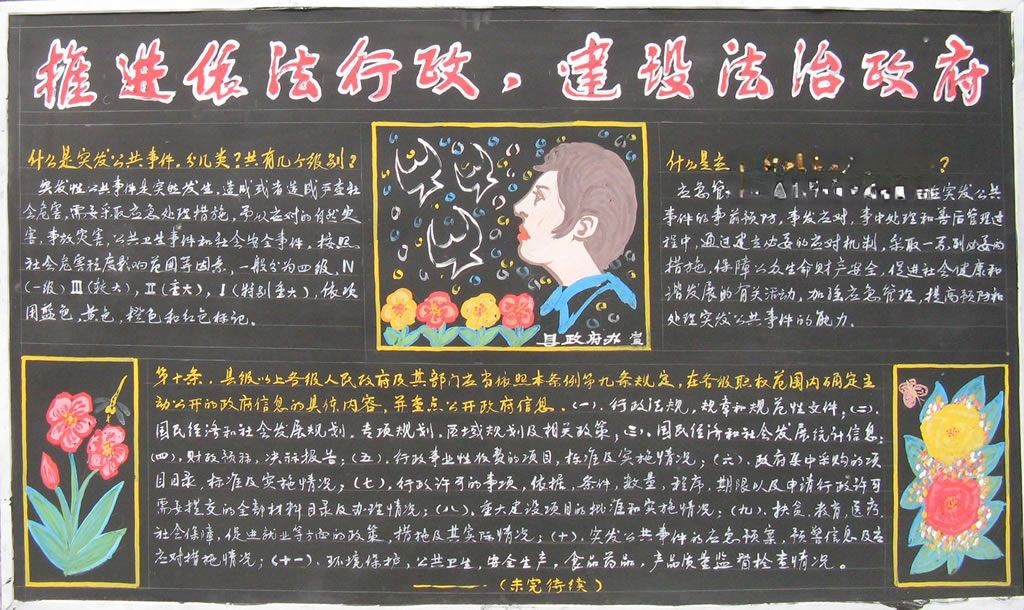 推进依法行政，建设法治政府
什么是突发公共事件。分几类？共有几个级别？
突发性公共事件是突然发生，造成或者造成严重社
会危害，需要采取应急处理措施，予以应对的自然灾
害，事故灾害，公共卫生事件和社会安全事件。按照
社会危害程度影响范围等因素，一般分为四级，Ⅳ
（一级）Ⅲ（较大），Ⅱ（重大），Ⅰ（特别重大），依次
用蓝色，黄色，橙色和红色标记。
县政府办宣
什么是 ？
应急管 突发公共
事件的事前预防，事发应对，事中处理和善后管理过
程中，通过建立必要的应对机制，采取一系列必要的
措施，保障公众生命财产安全，促进社会健康和
谐发展的有关活动，加强应急管理，提高预防和
处理突发公共事件的能力。
第十条，县级以上各级人民政府及其部门应当依照本条例第九条规定，在各级职权范围内确定主
动公开的政府信息的具体内容，并重点公开政府信息。（一），行政法规，规章和规范性文件，（二），
国民经济和社会发展规划，专项规划，区域规划及相关政策，（三）、国民经济和社会发展统计信息；
（四），财政预标，决标报告；（五），行政事业性收费的项目，标准及实施情况；（六），政府集中采购的项
目目录，标准及实施情况；（七），行政许可的事项，依据，条件，数量，程序，期限以及申请行政许可
需要提交的全部材料目录及办理情况；（八），重大建设项目的批准和实施情况；（九），扶贫，教育，医药，
社会保障，促进就业等方面的政策，措施及其实际情况；（十），突发公共事件的应急预案，预警信息及
应对措施情况；（十一），环境保护，公共卫生，安全生产，食品药品，产品质量监督检查情况。
———（未完待续）